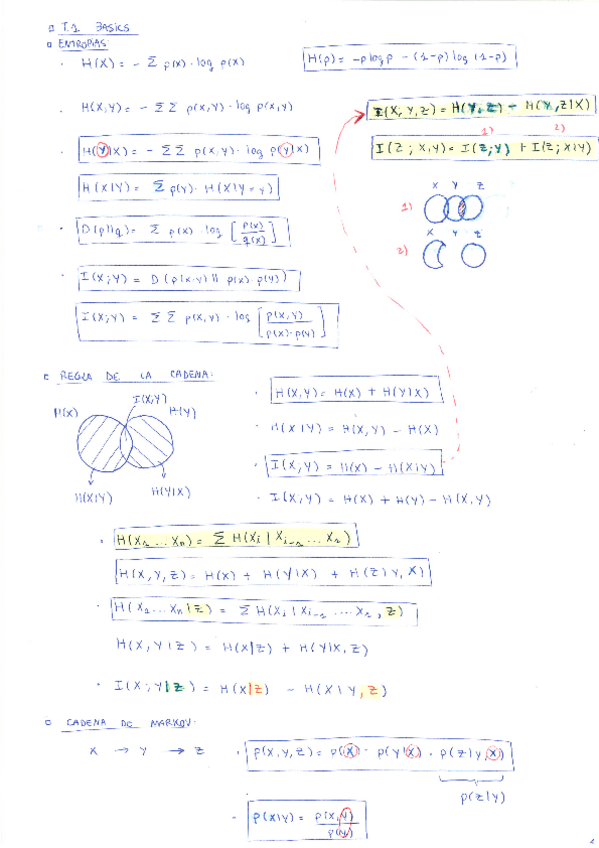 T.1 BASICS
ENTROPIAS:
H(X) = - Σ p(x) · log p(x)
H(p) = -p log p - (1-p) log (1-p)
H(X,Y) = - Σ Σ p(x,y) · log p(x,y)
I(X,Y,Z) = H(Y,Z) - H(Y,Z|X)
1) 2)
H(Y|X) = - Σ Σ p(x,y) · log p(y|x)
I(Z; X,Y) = I(Z;Y) + I(Z;X|Y)
H(X|Y) = Σ p(y) · H(X|Y=y)
X Y Z
1)
D(p||q) = Σ p(x) · log [p(x)/q(x)]
X Y Z
2)
I(X;Y) = D(p(x,y) || p(x)·p(y))
I(X;Y) = Σ Σ p(x,y) · log [p(x,y)/p(x)·p(y)]
REGLA DE LA CADENA:
H(X,Y) = H(X) + H(Y|X)
I(X,Y)
H(X) H(Y)
H(X|Y) = H(X,Y) - H(X)
I(X,Y) = H(X) - H(X|Y)
H(X|Y) H(Y|X)
I(X,Y) = H(X) + H(Y) - H(X,Y)
H(X1 ... Xn) = Σ H(Xi | Xi-1 ... X1)
H(X,Y,Z) = H(X) + H(Y|X) + H(Z|Y,X)
H(X1 ... Xn|Z) = Σ H(Xi | Xi-1 ... X1, Z)
H(X,Y|Z) = H(X|Z) + H(Y|X,Z)
I(X;Y|Z) = H(X|Z) - H(X|Y,Z)
CADENA DE MARKOV:
X → Y → Z
p(x,y,z) = p(x) · p(y|x) · p(z|y,x)
p(z|y)
p(x|y) = p(x,y)/p(y)